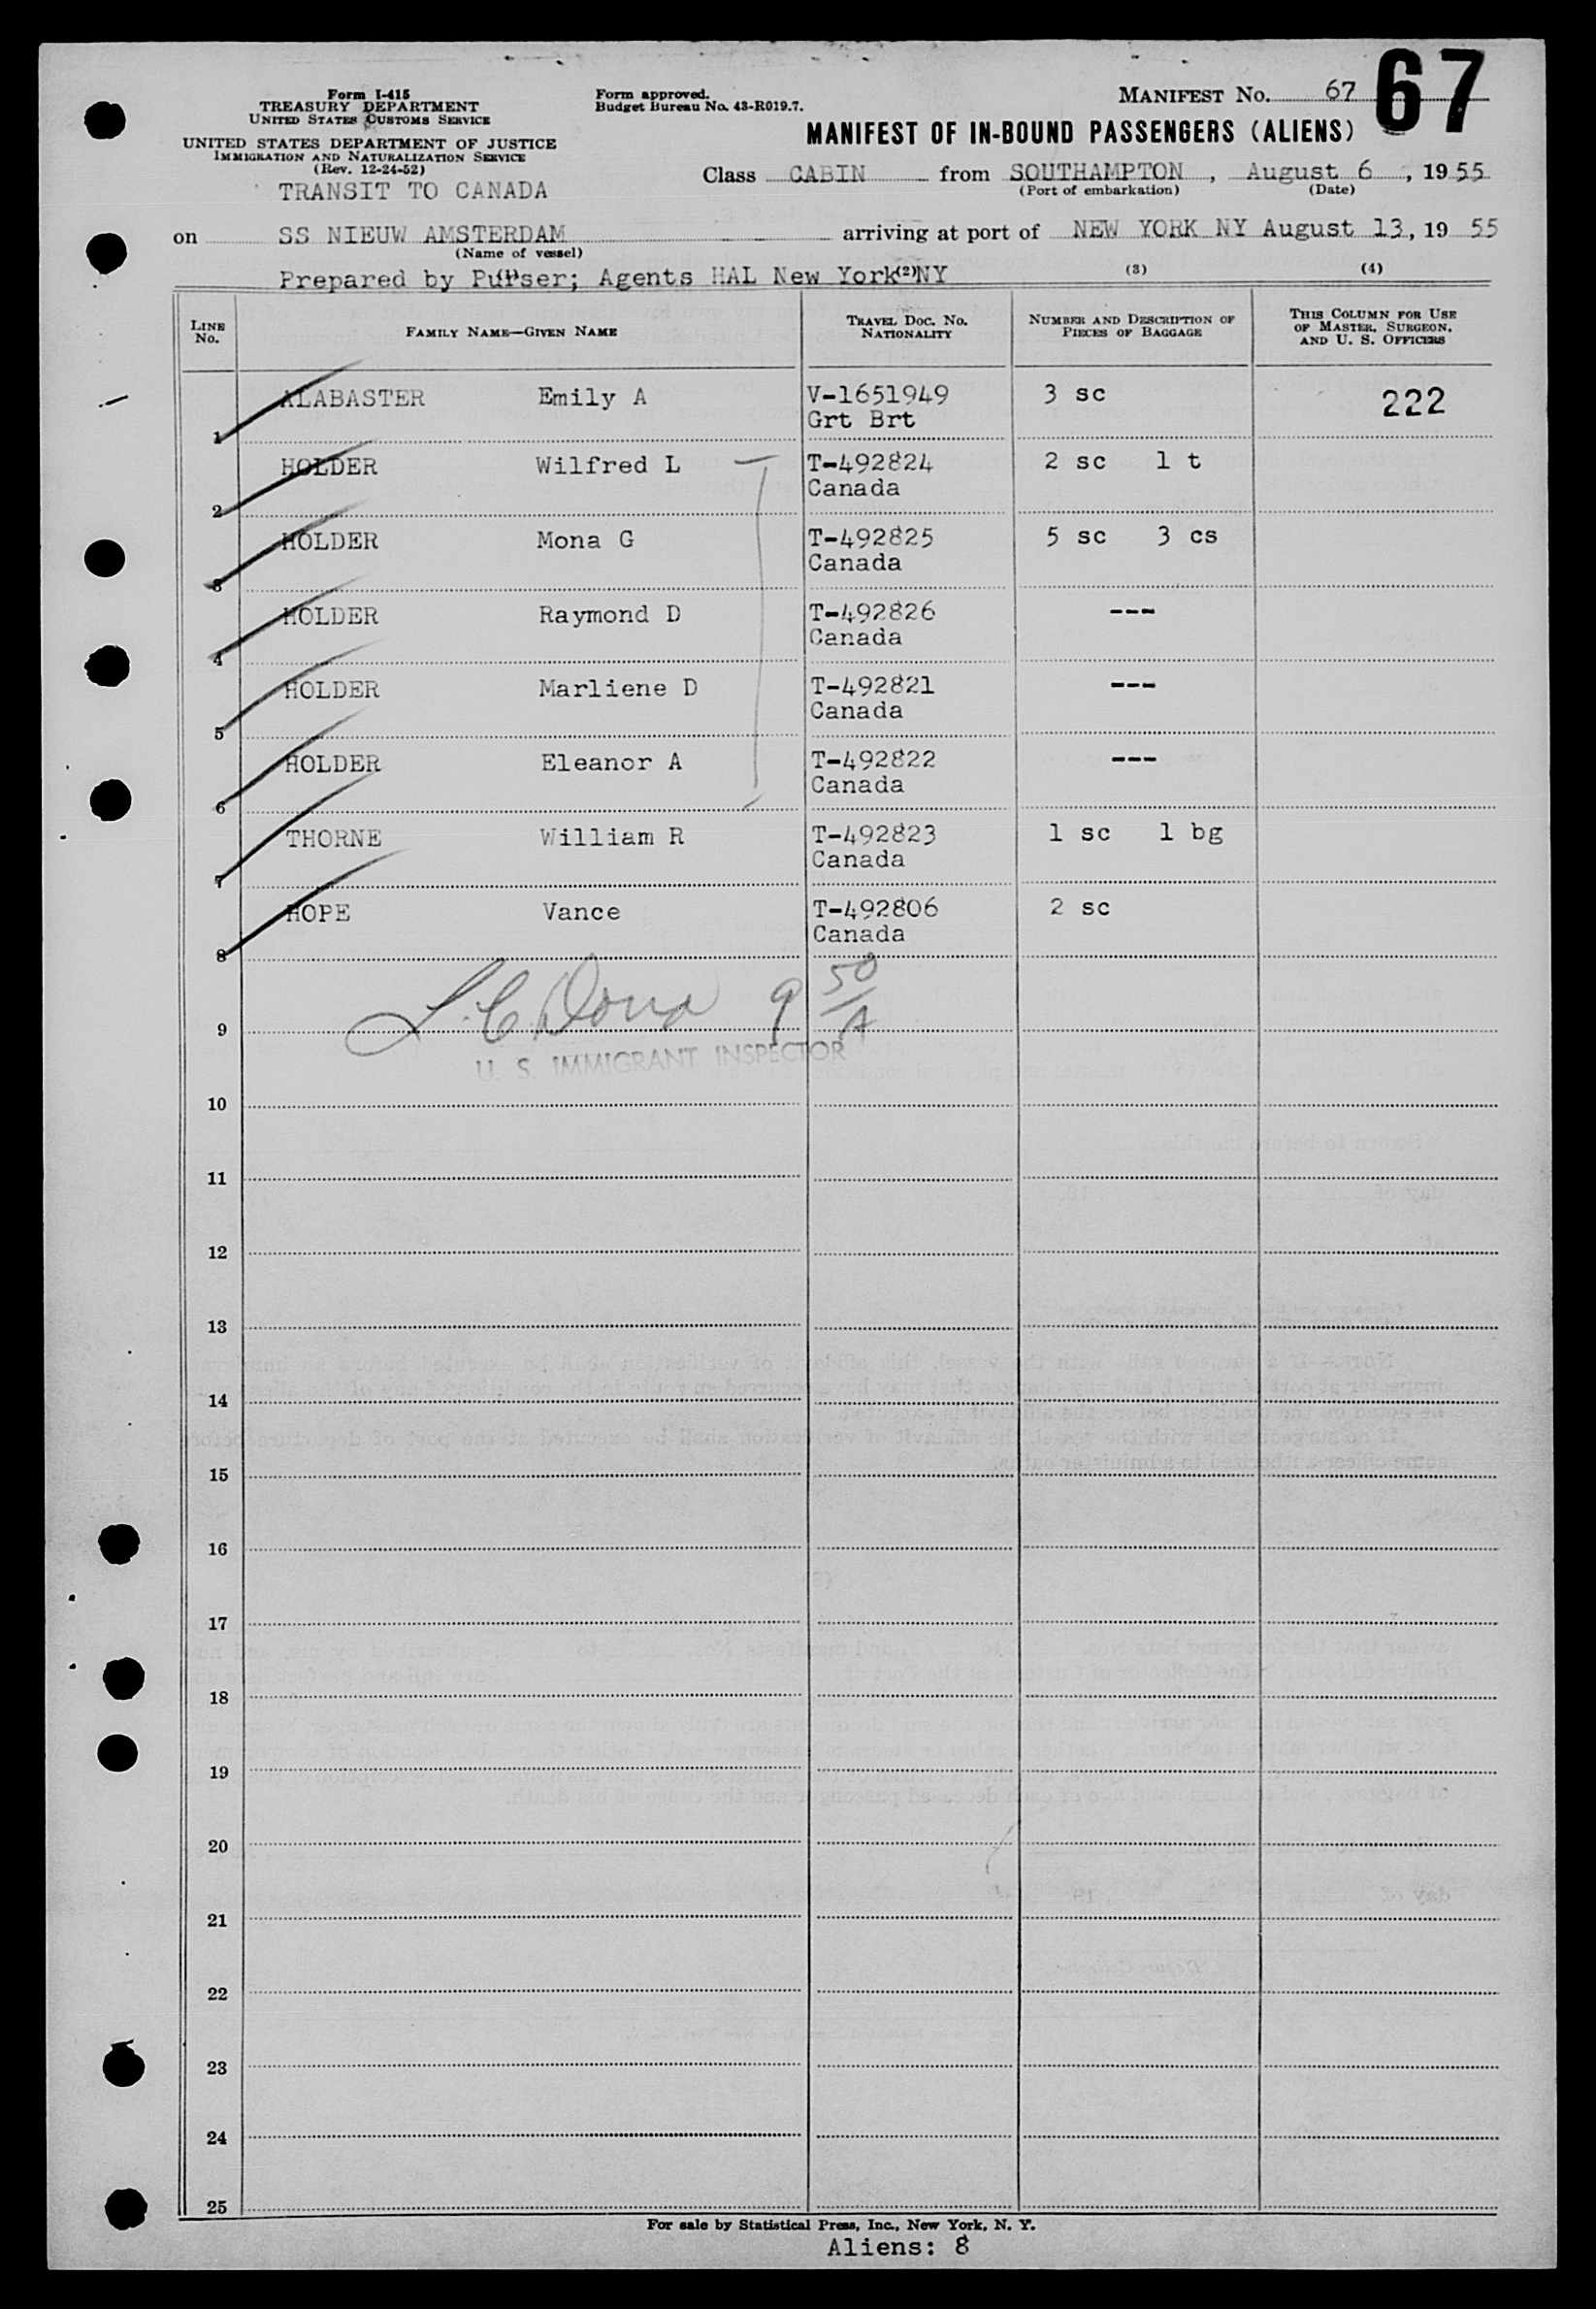 67
Form I-415
TREASURY DEPARTMENT
UNITED STATES CUSTOMS SERVICE
UNITED STATES DEPARTMENT OF JUSTICE
IMMIGRATION AND NATURALIZATION SERVICE
(Rev. 12-24-52)
TRANSIT TO CANADA
Form approved.
Budget Bureau No. 43-R019.7.
MANIFEST No. 67
MANIFEST OF IN-BOUND PASSENGERS (ALIENS)
Class CABIN from SOUTHAMPTON, August 6, 1955
(Port of embarkation) (Date)
on SS NIEUW AMSTERDAM arriving at port of NEW YORK NY August 13, 19 55
(Name of vessel)
Prepared by Purser; Agents HAL New York NY
(1) (2) (3) (4)
LINE No. FAMILY NAME—GIVEN NAME TRAVEL DOC. No. NATIONALITY NUMBER AND DESCRIPTION OF PIECES OF BAGGAGE THIS COLUMN FOR USE OF MASTER, SURGEON, AND U. S. OFFICERS
1 ALABASTER Emily A V-1651949 3 sc 222
Grt Brt
2 HOLDER Wilfred L T-492824 2 sc 1 t
Canada
3 HOLDER Mona G T-492825 5 sc 3 cs
Canada
4 HOLDER Raymond D T-492826 ---
Canada
5 HOLDER Marliene D T-492821 ---
Canada
6 HOLDER Eleanor A T-492822 ---
Canada
7 THORNE William R T-492823 1 sc 1 bg
Canada
8 HOPE Vance T-492806 2 sc
Canada
9 50/A
U. S. IMMIGRANT INSPECTOR
9
10
11
12
13
14
15
16
17
18
19
20
21
22
23
24
25
For sale by Statistical Press, Inc., New York, N. Y.
Aliens: 8